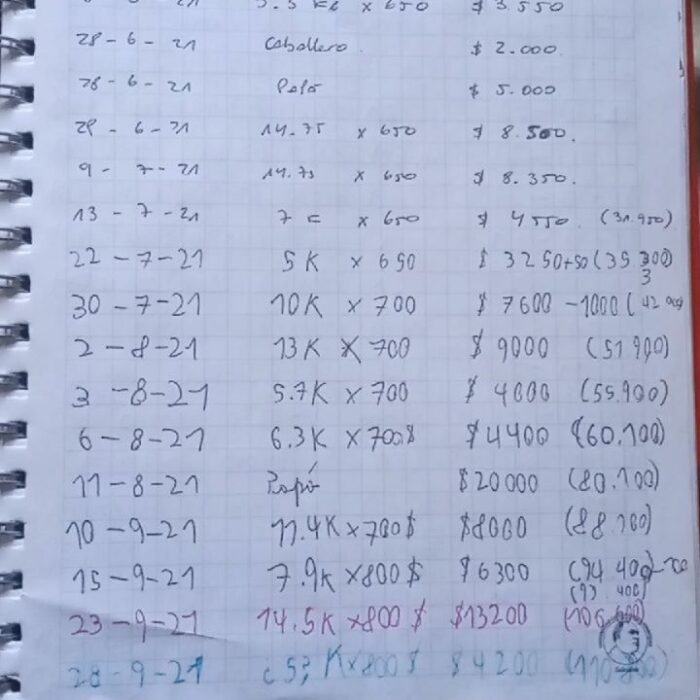 5.5 KL x 650 $ 3.550
28 - 6 - 21 Caballero. $ 2.000
28 - 6 - 21 Papá $ 5.000
29 - 6 - 21 14.75 x 650 $ 8.500.
9 - 7 - 21 14.75 x 650 $ 8.350.
13 - 7 - 21 7 K x 650 $ 4550. (31.950)
22 - 7 - 21 5K x 650 $ 3250+50 (35 300)
3
30 - 7 - 21 10K x 700 $ 7600 - 1000 (
2 - 8 - 21 13K x 700 $ 9000 (51.900)
3 - 8 - 21 5.7K x 700 $ 4000 (55.900)
6 - 8 - 21 6.3K x 700$ $4400 (60.100)
11 - 8 - 21 Papá $20000 (80.100)
10 - 9 - 21 11.4K x 700$ $8000 (88.100)
15 - 9 - 21 7.9K x 800$ $6300 (94.400)
(93.400)
23 - 9 - 21 14.5K x 800 $ $13200
28 - 9 - 21 ¿5? K x 800 $ $4200